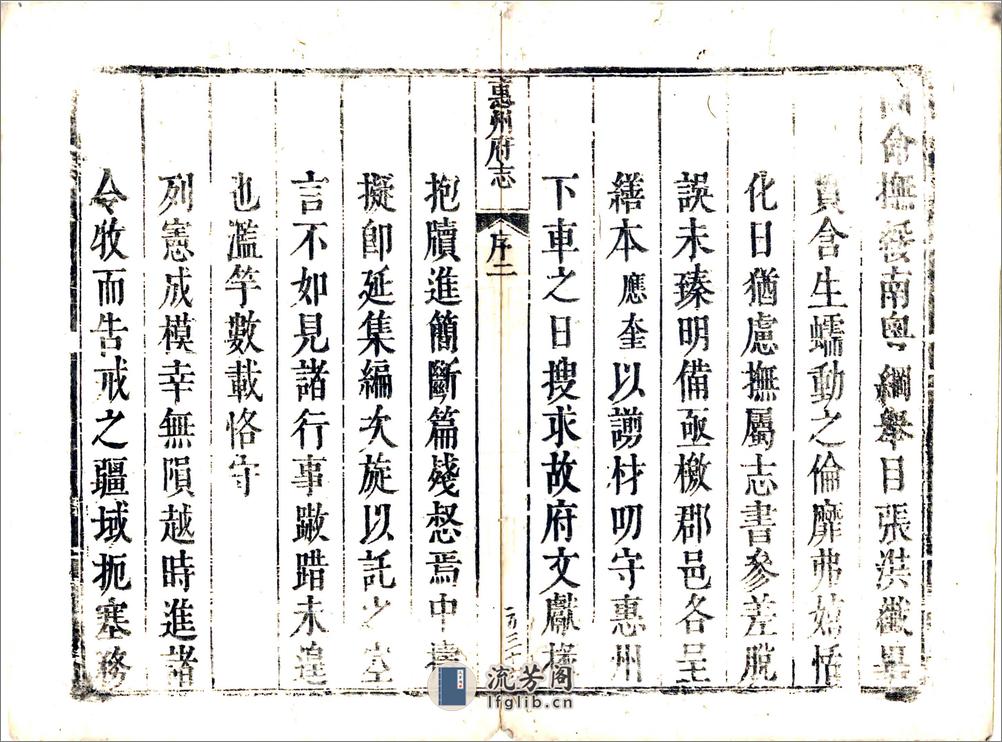 命撫發南粵綱舉目張洪纖畢
貫含生蠕動之倫靡弗嬉恬
化日猶慮撫屬志書參差脫
誤未臻明備亟檄郡邑各呈
繕本應奎以謭材叨守惠州
下車之日搜求故府文獻
惠州府志
序二
抱牘進簡斷篇殘惄焉中
擬卽延集編次旋以託之空
言不如見諸行事蹶踖未遑
也濫竽數載恪守
列憲成模幸無隕越時進諸
令牧而告戒之疆域扼塞務
流芳阁
lfglib.cn